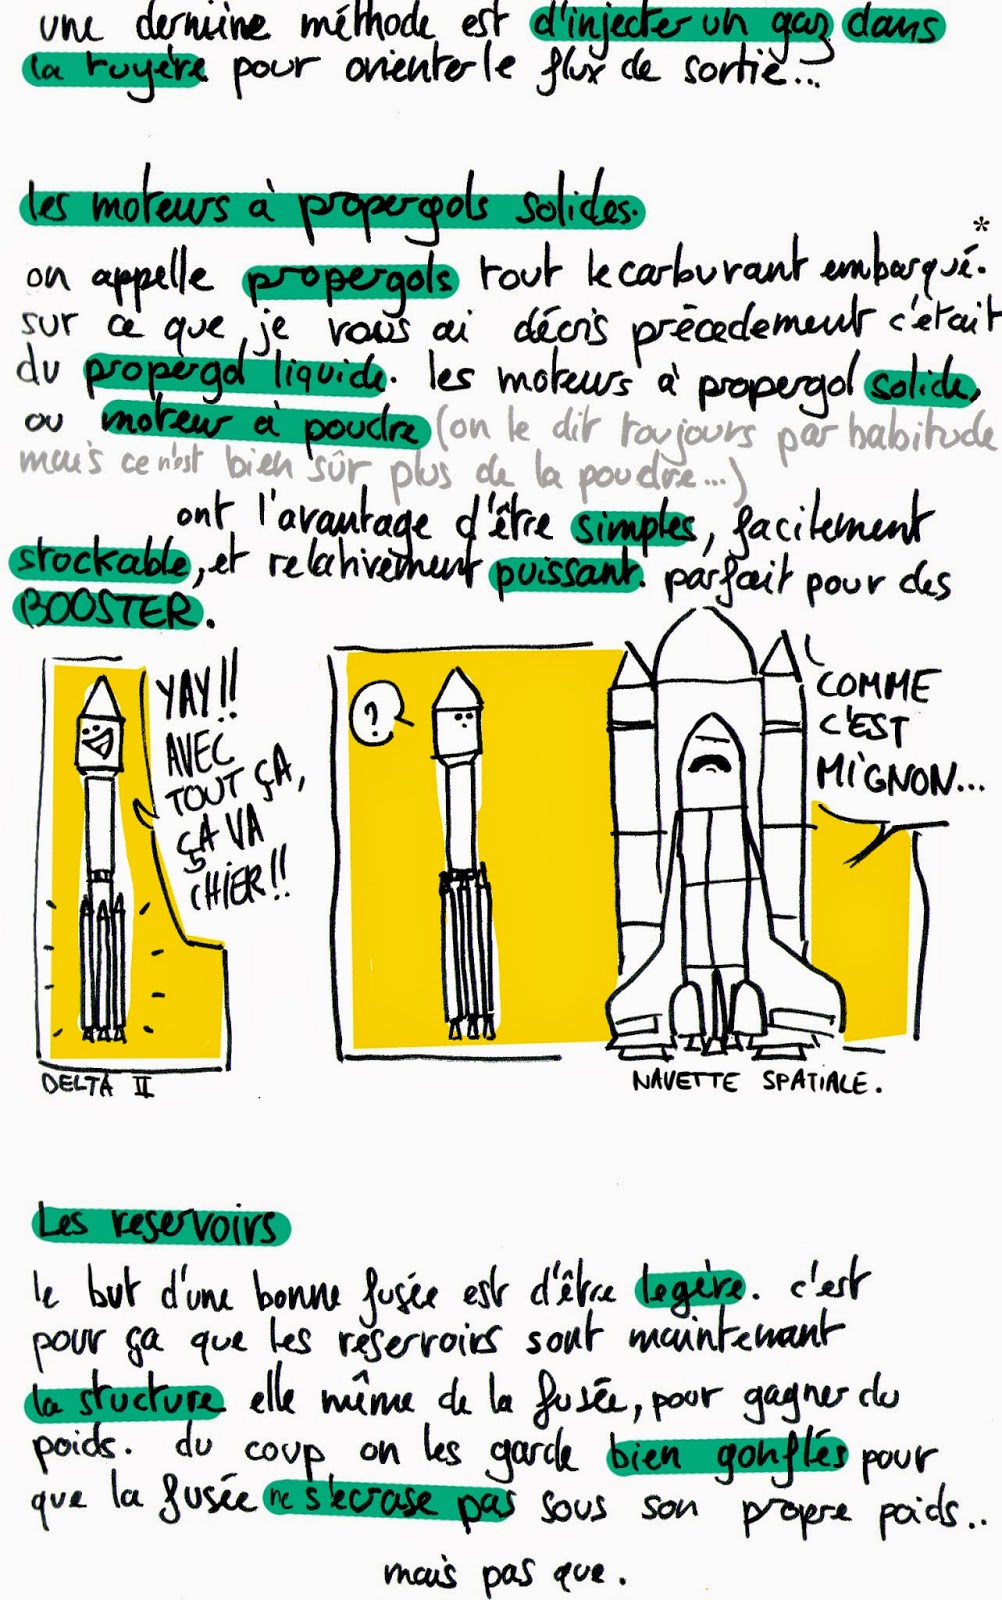 une dernière méthode est d'injecter un gaz dans
la tuyère pour orienter le flux de sortie...
les moteurs à propergols solides.
on appelle propergols tout le carburant embarqué.*
sur ce que je vous ai décris précedement c'était
du propergol liquide. les moteurs à propergol solide,
ou moteur à poudre (on le dit toujours par habitude
mais ce n'est bien sûr plus de la poudre...)
ont l'avantage d'être simples, facilement
stockable, et relativement puissant. parfait pour des
BOOSTER.
YAY!!
AVEC
TOUT ÇA,
ÇA VA
CHIER!!
DELTA II
?
COMME
C'EST
MIGNON...
NAVETTE SPATIALE.
Les reservoirs
le but d'une bonne fusée est d'être legère. c'est
pour ça que les réservoirs sont maintenant
la stucture elle même de la fusée, pour gagner du
poids. du coup on les garde bien gonflés pour
que la fusée ne s'ecrase pas sous son propre poids..
mais pas que.